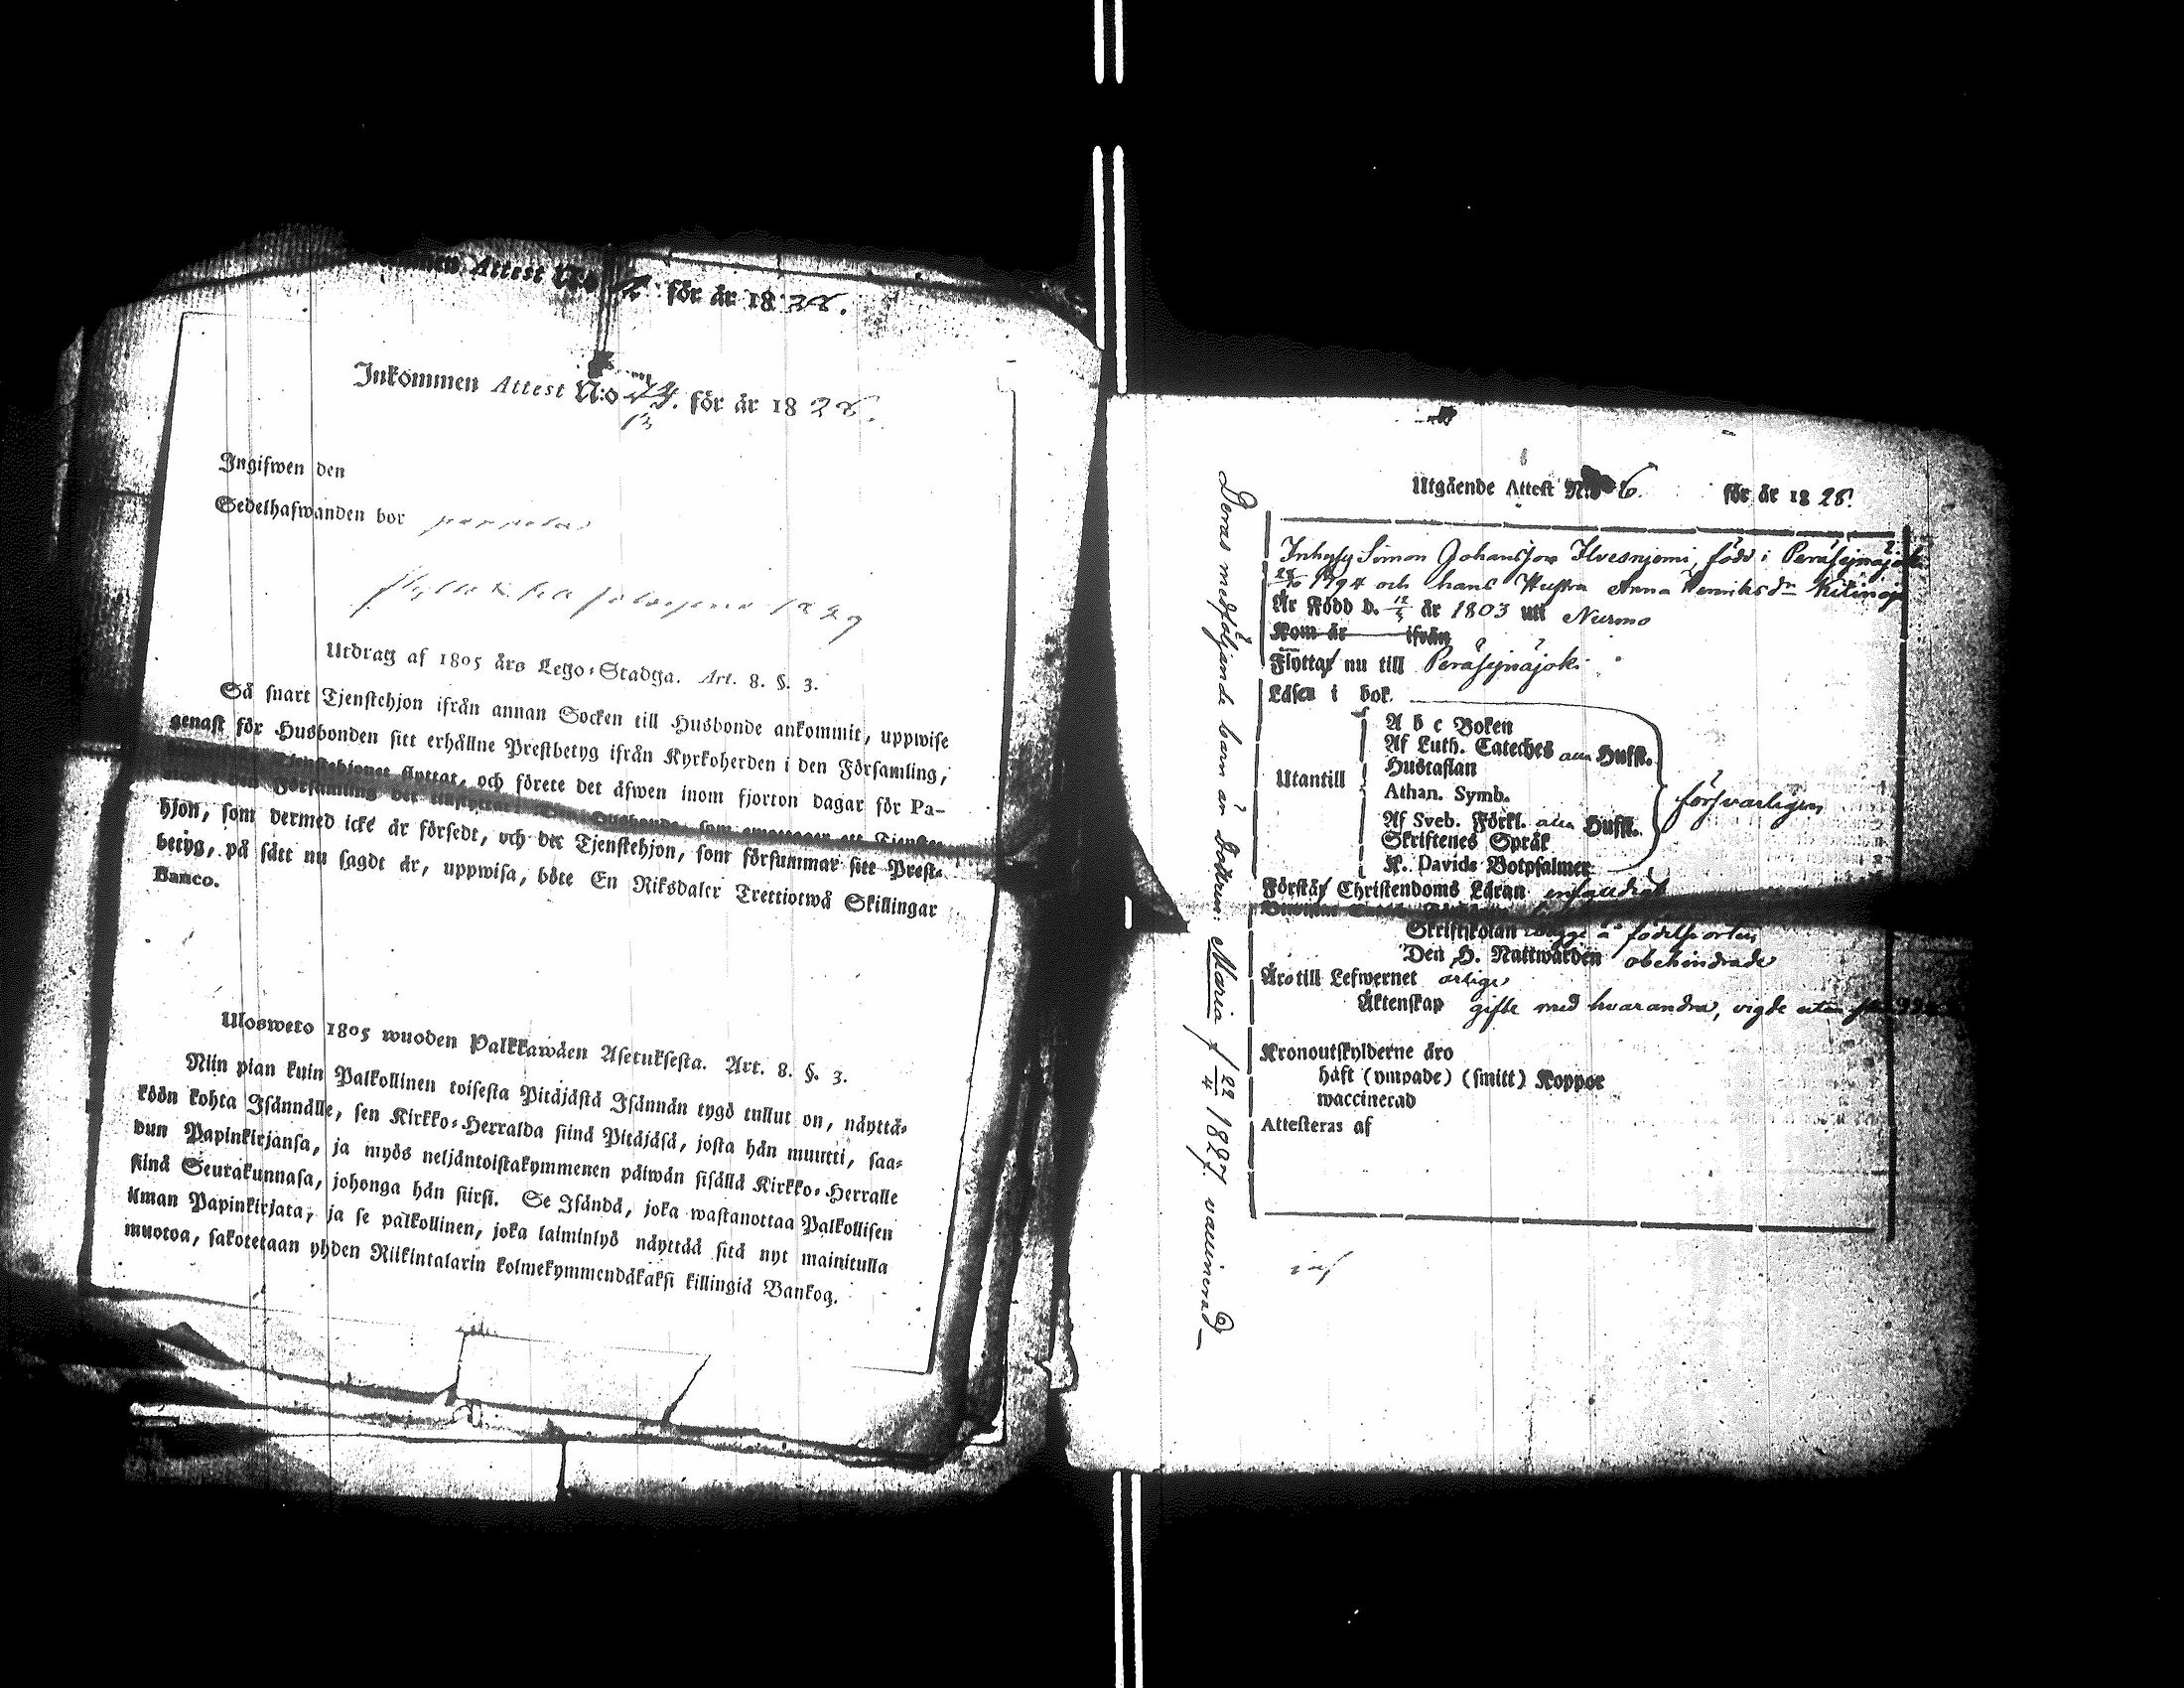 Attest N:o för år 1828.
Inkommen Attest N:o 24. för år 1828.
13
Ingifwen den
Sedelhafwanden bor
1829
Utdrag af 1805 års Lego-Stadga. Art. 8. §. 3.
Så snart Tjenstehjon ifrån annan Socken till Husbonde ankommit, uppwise
genast för Husbonden sitt erhållne Prestbetyg ifrån Kyrkoherden i den Församling,
Tjenstehjonet flyttat, och förete det äfwen inom fjorton dagar för Pa-
Församling det
hjon, som dermed icke är försedt, och det Tjenstehjon, som försummar sitt Prest-
betyg, på sätt nu sagdt är, uppwisa, böte En Riksdaler Trettiotwå Skillingar
Banco.
Ulosweto 1805 wuoden Palkkawäen Asetuksesta. Art. 8. §. 3.
Niin pian kuin Palkollinen toisesta Pitäjästä Isännän tygö tullut on, näyttä-
köön kohta Isännälle, sen Kirkko-Herralda siinä Pitäjäsä, josta hän muutti, saa-
dun Papinkirjansa, ja myös neljäntoistakymmenen päiwän sisällä Kirkko-Herralle
siinä Seurakunnasa, johonga hän siirsi. Se Isändä, joka wastanottaa Palkollisen
ilman Papinkirjata, ja se palkollinen, joka laiminlyö näyttää sitä nyt mainitulla
muotoa, sakotetaan yhden Riikintalarin kolmekymmendäkaksi killingiä Bankog.
Utgående Attest N:o 6. för år 1828.
Inhysg Simon Johansson Ilvesnjemi, född i Peräsejnäjoki
1794 och hans Hustru Anna Henriksdr
Är Född d. 12/5 år 1803 uti Nurmo
Kom år ifrån
Flyttar nu till Peräsejnäjoki
Läsen i bok.
Utantill
A b c Boken
Af Luth. Cateches alla Hufst.
Hustaflan
Athan. Symb.
Af Sveb. Förkl. alla Hufst.
Skriftenes Språk
K. Davids Botpsalmer
försvarligen
Förstår Christendoms Läran enfaldigt
Skriftskolan å födelseorten
Den H. Nattwarden obehindrade
Äro till Lefwernet ärlige
Äktenskap gifte med hvarandra, vigde utan
Kronoutskylderne äro
haft (ympade) (smitt) Koppor
waccinerad
Attesteras af
Deras medföljande barn är Dottren: Maria f 22/4 1827. vaccinerad